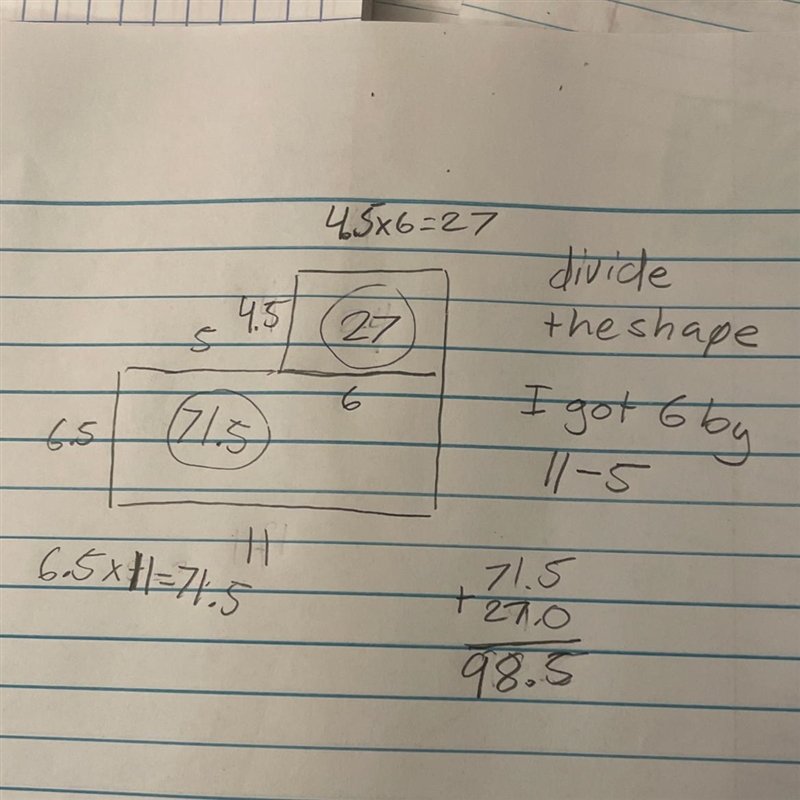 4.5x6=27
divide
the shape
4.5
27
5
6
I got 6 by
11-5
6.5
71.5
11
6.5x11=71.5
71.5
+27.0
98.5